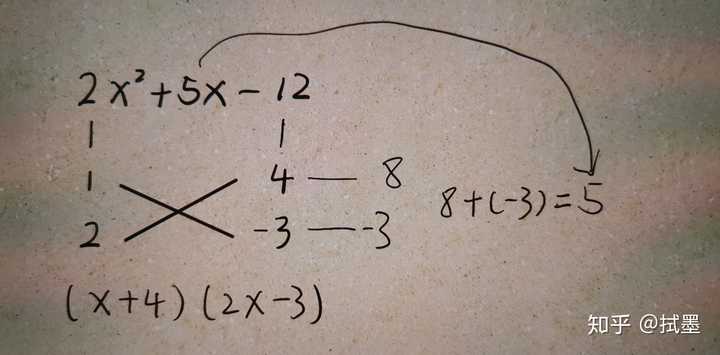 2x²+5x-12
1 4 — 8
8+(-3)=5
2 -3 — -3
(x+4)(2x-3)
知乎 @拭墨